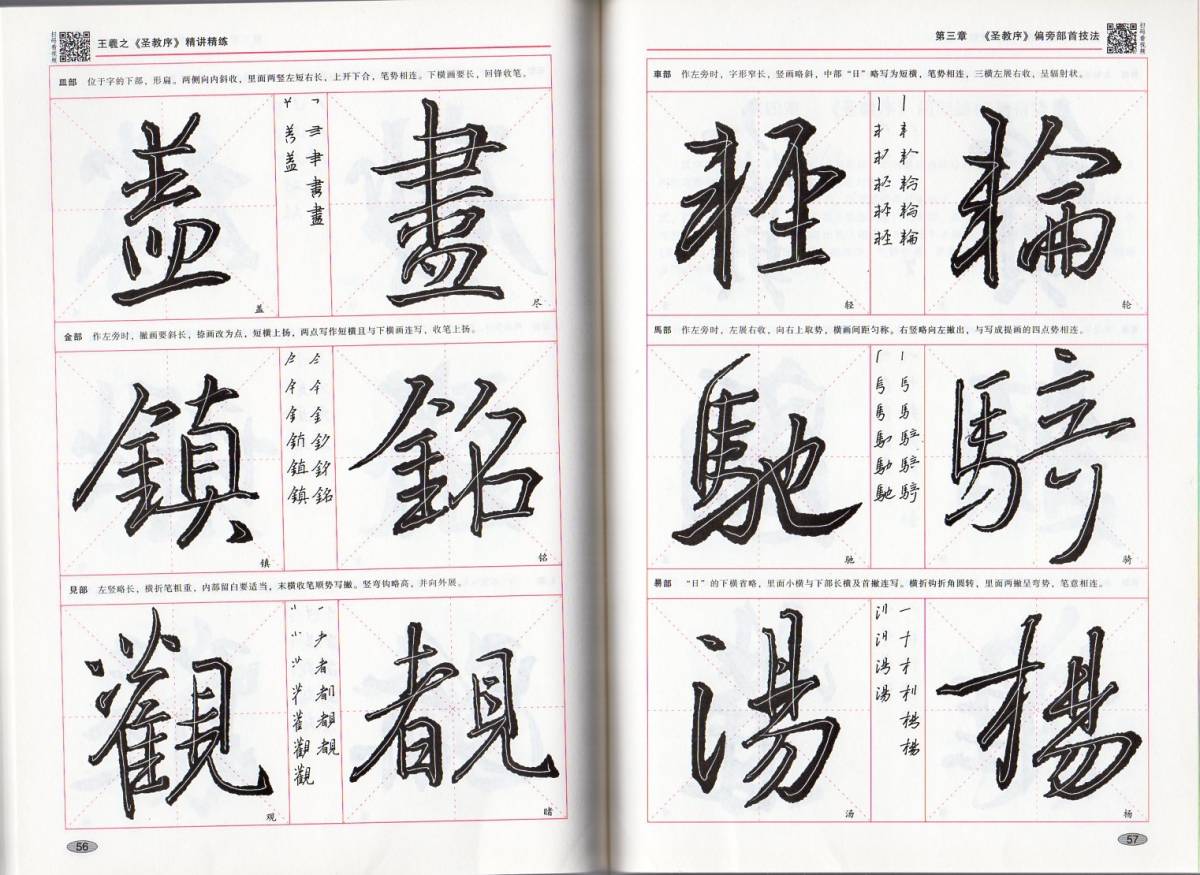 扫码看视频
王羲之《圣教序》精讲精练
皿部 位于字的下部，形扁。两侧向内斜收，里面两竖左短右长，上开下合，笔势相连。下横画要长，回锋收笔。
盖 盡
盖 尽
金部 作左旁时，撇画要斜长，捺画改为点，短横上扬，两点写作短横且与下横画连写，收笔上扬。
鎮 銘
镇 铭
見部 左竖略长，横折笔粗重，内部留白要适当，末横收笔顺势写撇。竖弯钩略高，并向外展。
觀 覩
观 睹
56
第三章 《圣教序》偏旁部首技法
扫码看视频
車部 作左旁时，字形窄长，竖画略斜，中部“日”略写为短横，笔势相连，三横左展右收，呈辐射状。
輕 輪
轻 轮
馬部 作左旁时，左展右收，向右上取势，横画间距匀称。右竖略向左撇出，与写成提画的四点势相连。
馳 騎
驰 骑
昜部 “日”的下横省略，里面小横与下部长横及首撇连写。横折钩折角圆转，里面两撇呈弯势，笔意相连。
湯 楊
汤 杨
57